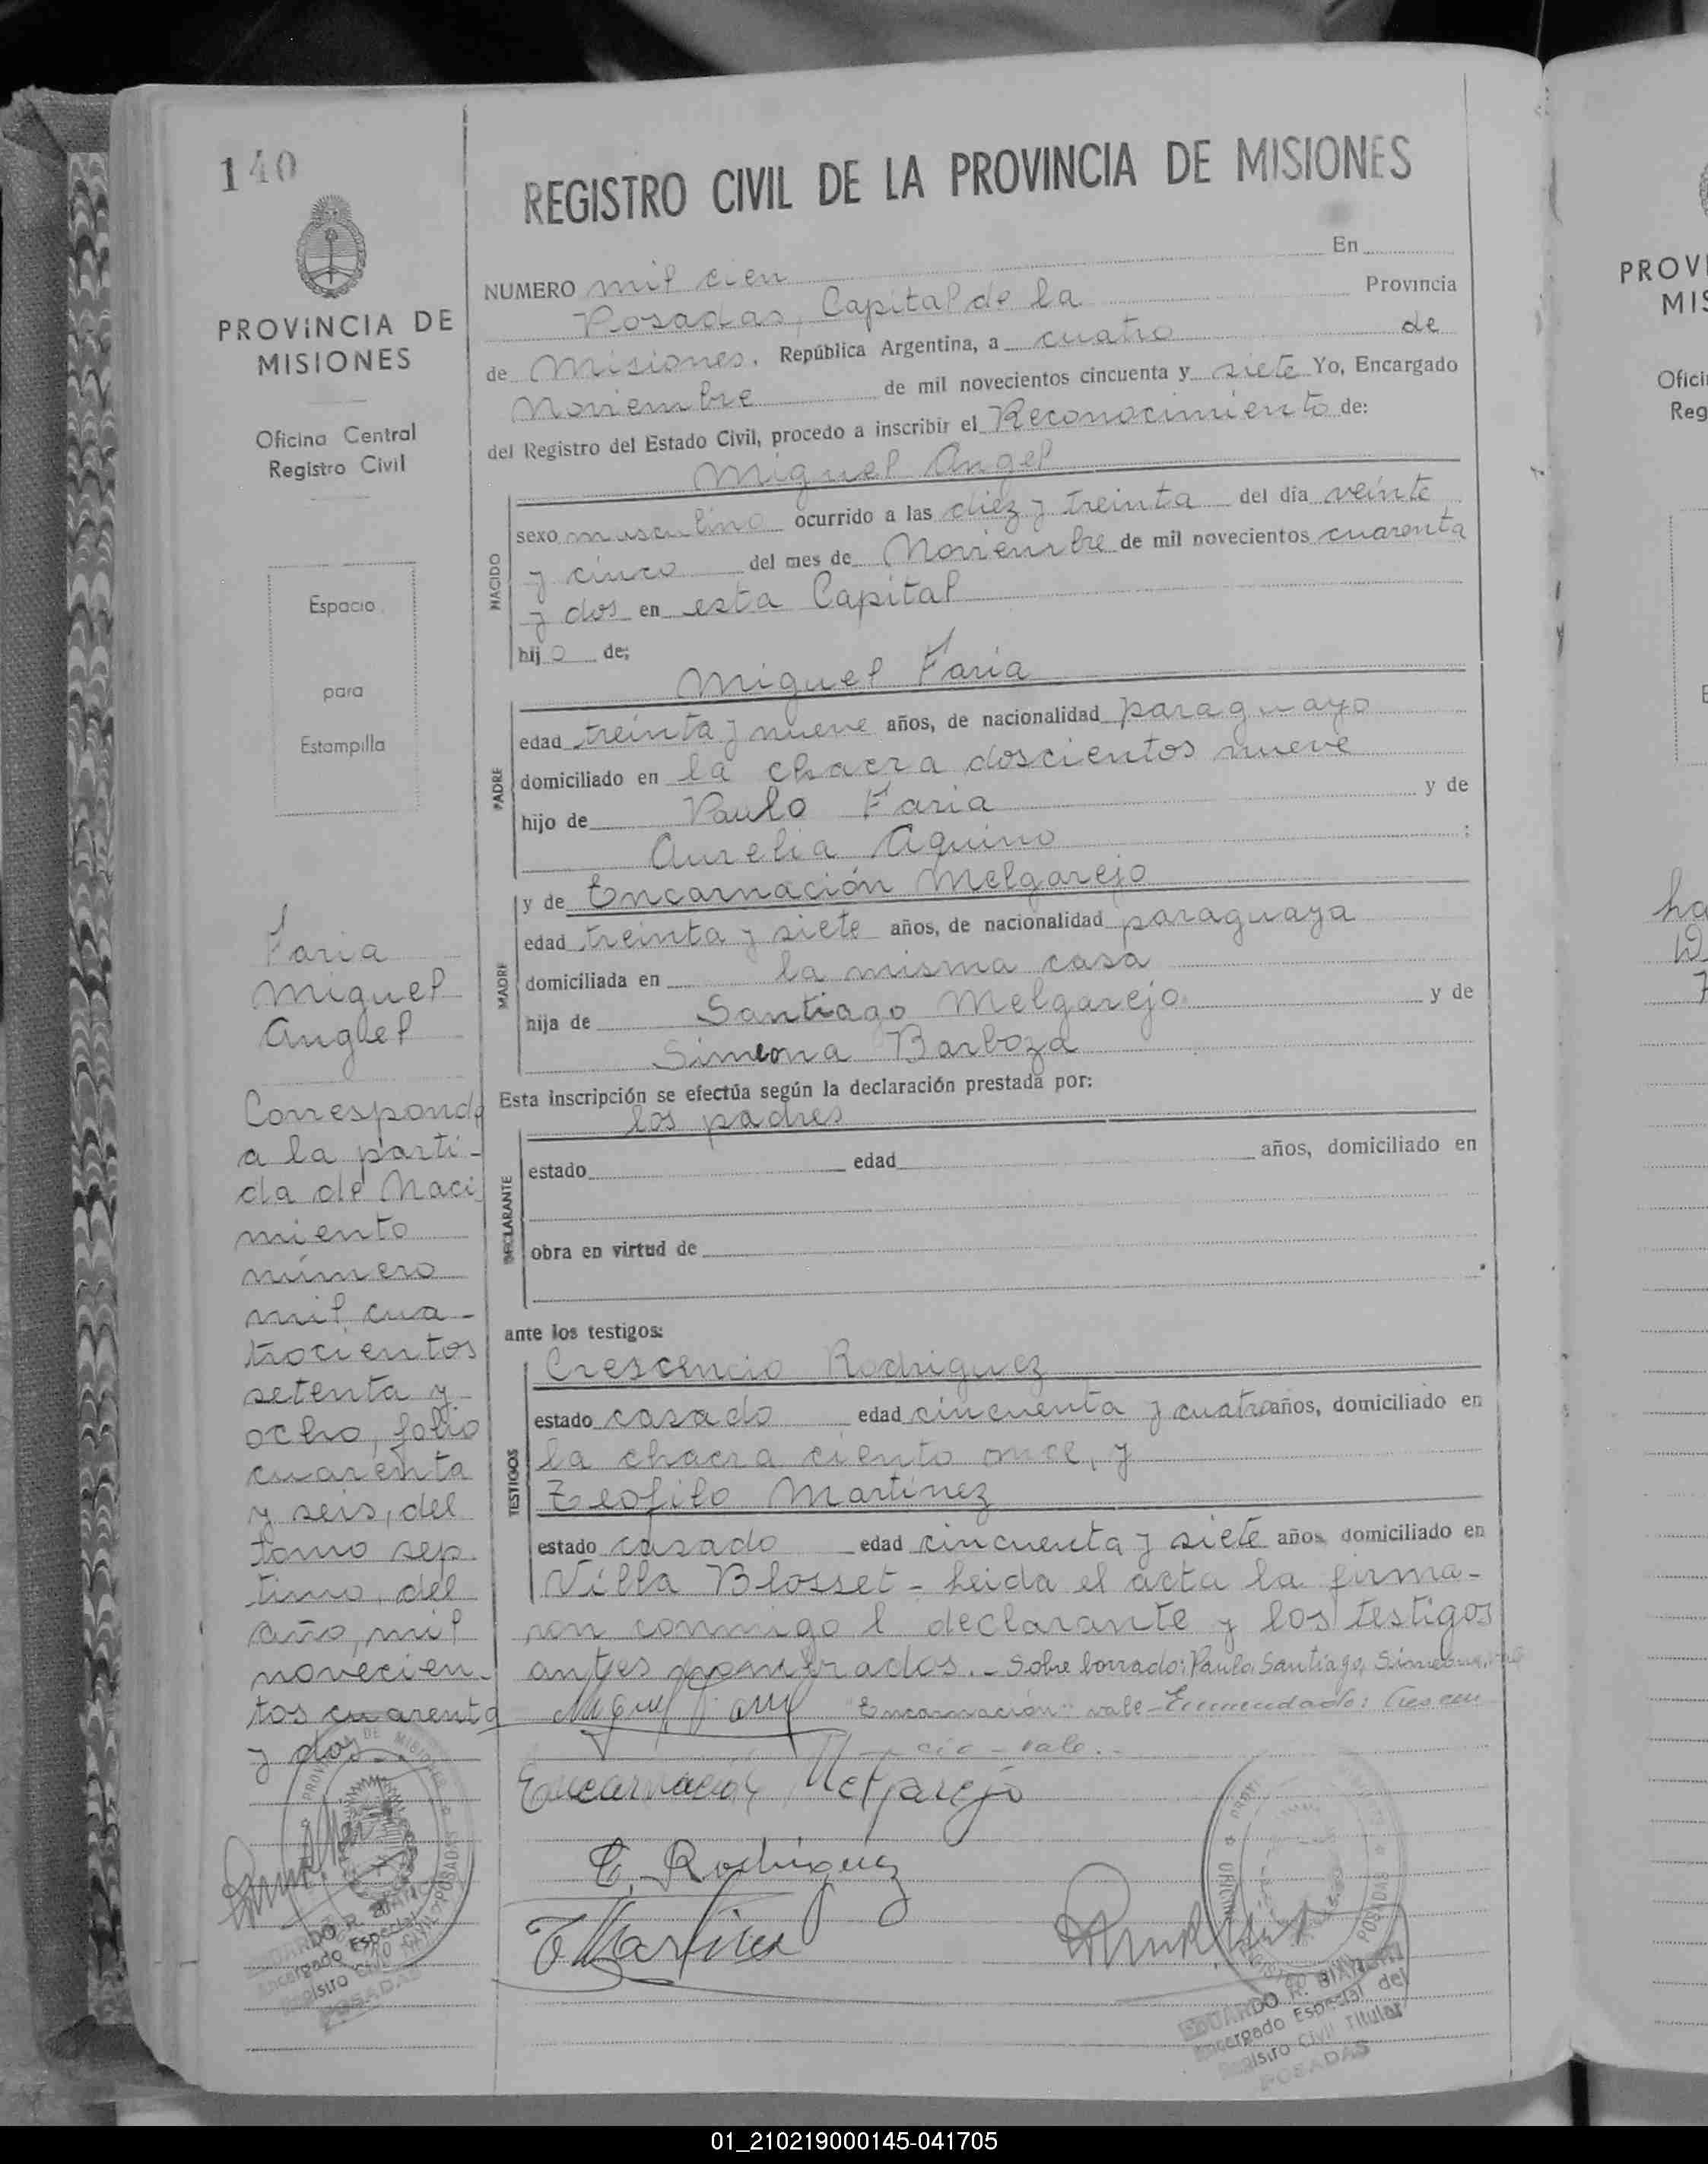 140
PROVINCIA DE
MISIONES
Oficina Central
Registro Civil
Espacio
para
Estampilla
Faria
Miguel
Anguel
Corresponde
a la parti-
da de Naci
miento
número
mil cua-
trocientos
setenta y
ocho, folio
cuarenta
y seis, del
tomo sep
timo, del
año, mil
novecien-
tos cuarenta
y dos
REGISTRO CIVIL DE LA PROVINCIA DE MISIONES
NUMERO mil cien En
Posadas, Capital de la Provincia
de Misiones. República Argentina, a cuatro de
Noviembre de mil novecientos cincuenta y siete Yo, Encargado
del Registro del Estado Civil, procedo a inscribir el Reconocimiento de:
Miguel Angel
NACIDO
sexo masculino ocurrido a las diez y treinta del día veinte
y cinco del mes de Noviembre de mil novecientos cuarenta
y dos en esta Capital
hijo de:
Miguel Faria
PADRE
edad treinta y nueve años, de nacionalidad paraguayo
domiciliado en la chacra doscientos nueve
hijo de Paulo Faria y de
Aurelia Aquino :
y de Encarnación Melgarejo
MADRE
edad treinta y siete años, de nacionalidad paraguaya
domiciliada en la misma casa
hija de Santiago Melgarejo y de
Simeona Barboza
Esta inscripción se efectúa según la declaración prestada por:
los padres
DECLARANTE
estado edad años, domiciliado en
obra en virtud de
ante los testigos:
Crescencio Rodriguez
TESTIGOS
estado casado edad cincuenta y cuatro años, domiciliado en
la chacra ciento once, y
Teofilo Martínez
estado casado edad cincuenta y siete años, domiciliado en
Villa Blosset - Leida el acta la firma-
ron conmigo l declarante y los testigos
antes nombrados. - Sobre borrado: Paulo, Santiago, Simeona, vale
"Encarnación" vale - Enmendado: Crescen
cio - vale. -
Miguel Faria
Encarnación Melgarejo
C. Rodriguez
T Martinez
PROVINCIA DE MISIONES
POSADAS
EDUARDO R.
Encargado Especial
Registro Civil
POSADAS
POSADAS
EDUARDO R.
Encargado Especial del
Registro Civil Titular
POSADAS
PROVI
MIS
Ofici
Reg
01_210219000145-041705